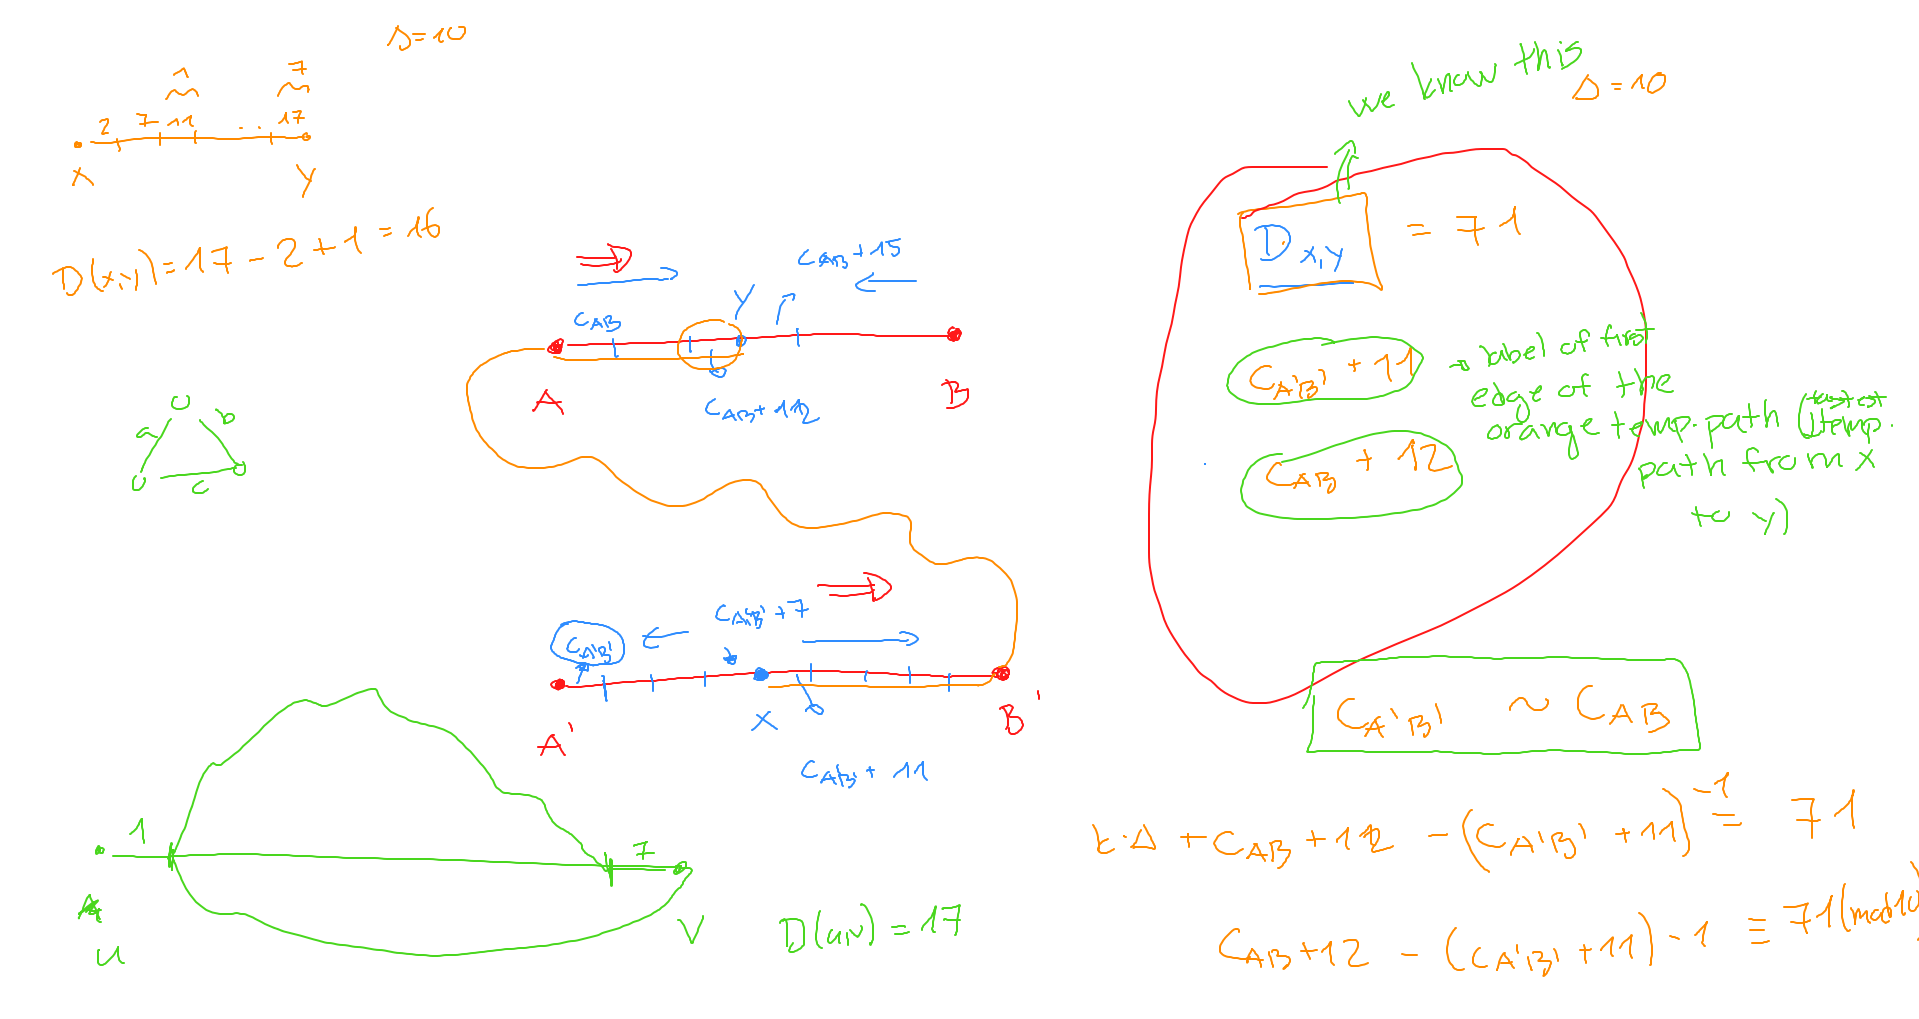 Δ=10
1 7
2 7 11 .. 17
X Y
D(x,y)=17-2+1=16
C_AB+15
Y
C_AB
A B
C_AB+12
a b
c
C_A'B'+7
C_A'B'
A' X B'
C_A'B'+11
1 7
u v
D(u,v)=17
we know this
Δ=10
D_x,y = 71
C_A'B'+11 → label of first
edge of the
orange temp. path (fastest
temp.
C_AB+12 path from x
to y)
C_A'B' ~ C_AB
k·Δ + C_AB+12 - (C_A'B'+11) -1 = 71
C_AB+12 - (C_A'B'+11) -1 ≡ 71 (mod 10)